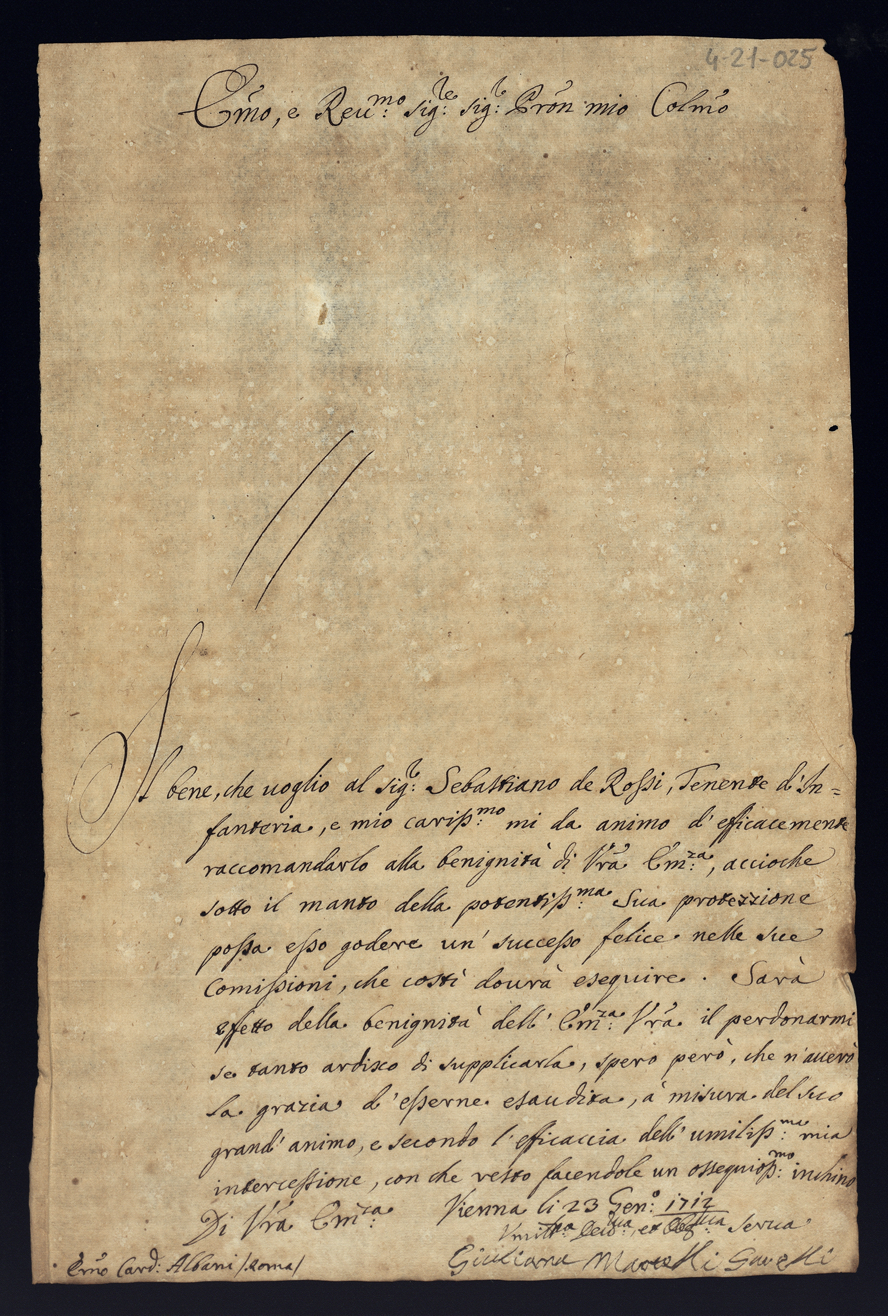 4-21-025
Emo, e Reu:mo sig:re sig:r Pron mio Colmo
Il bene, che uoglio al sig:r Sebastiano de Rossi, Tenente d'In=
fanteria, e mio cariss:mo mi da animo d'efficacemente
raccomandarlo alla benignità di Vra Em:za, accioche
sotto il manto della potentiss:ma Sua protezzione
possa esso godere un' successo felice nelle sue
Comissioni, che costì dourà eseguire. Sarà
effetto della benignità dell' Em:za Vra il perdonarmi
se tanto ardisco di supplicarla, spero però, che n'auerò
la grazia d'esserne esaudita, à misura del suo
grand' animo, e secondo l'efficacia dell' umiliss:ma mia
intercessione, con che resto facendole un ossequios:mo inchino
Di Vra Em:za Vienna li 23 Gen:o 1712
et serua
Emo Card: Albani /Roma/ Giuliana Savelli